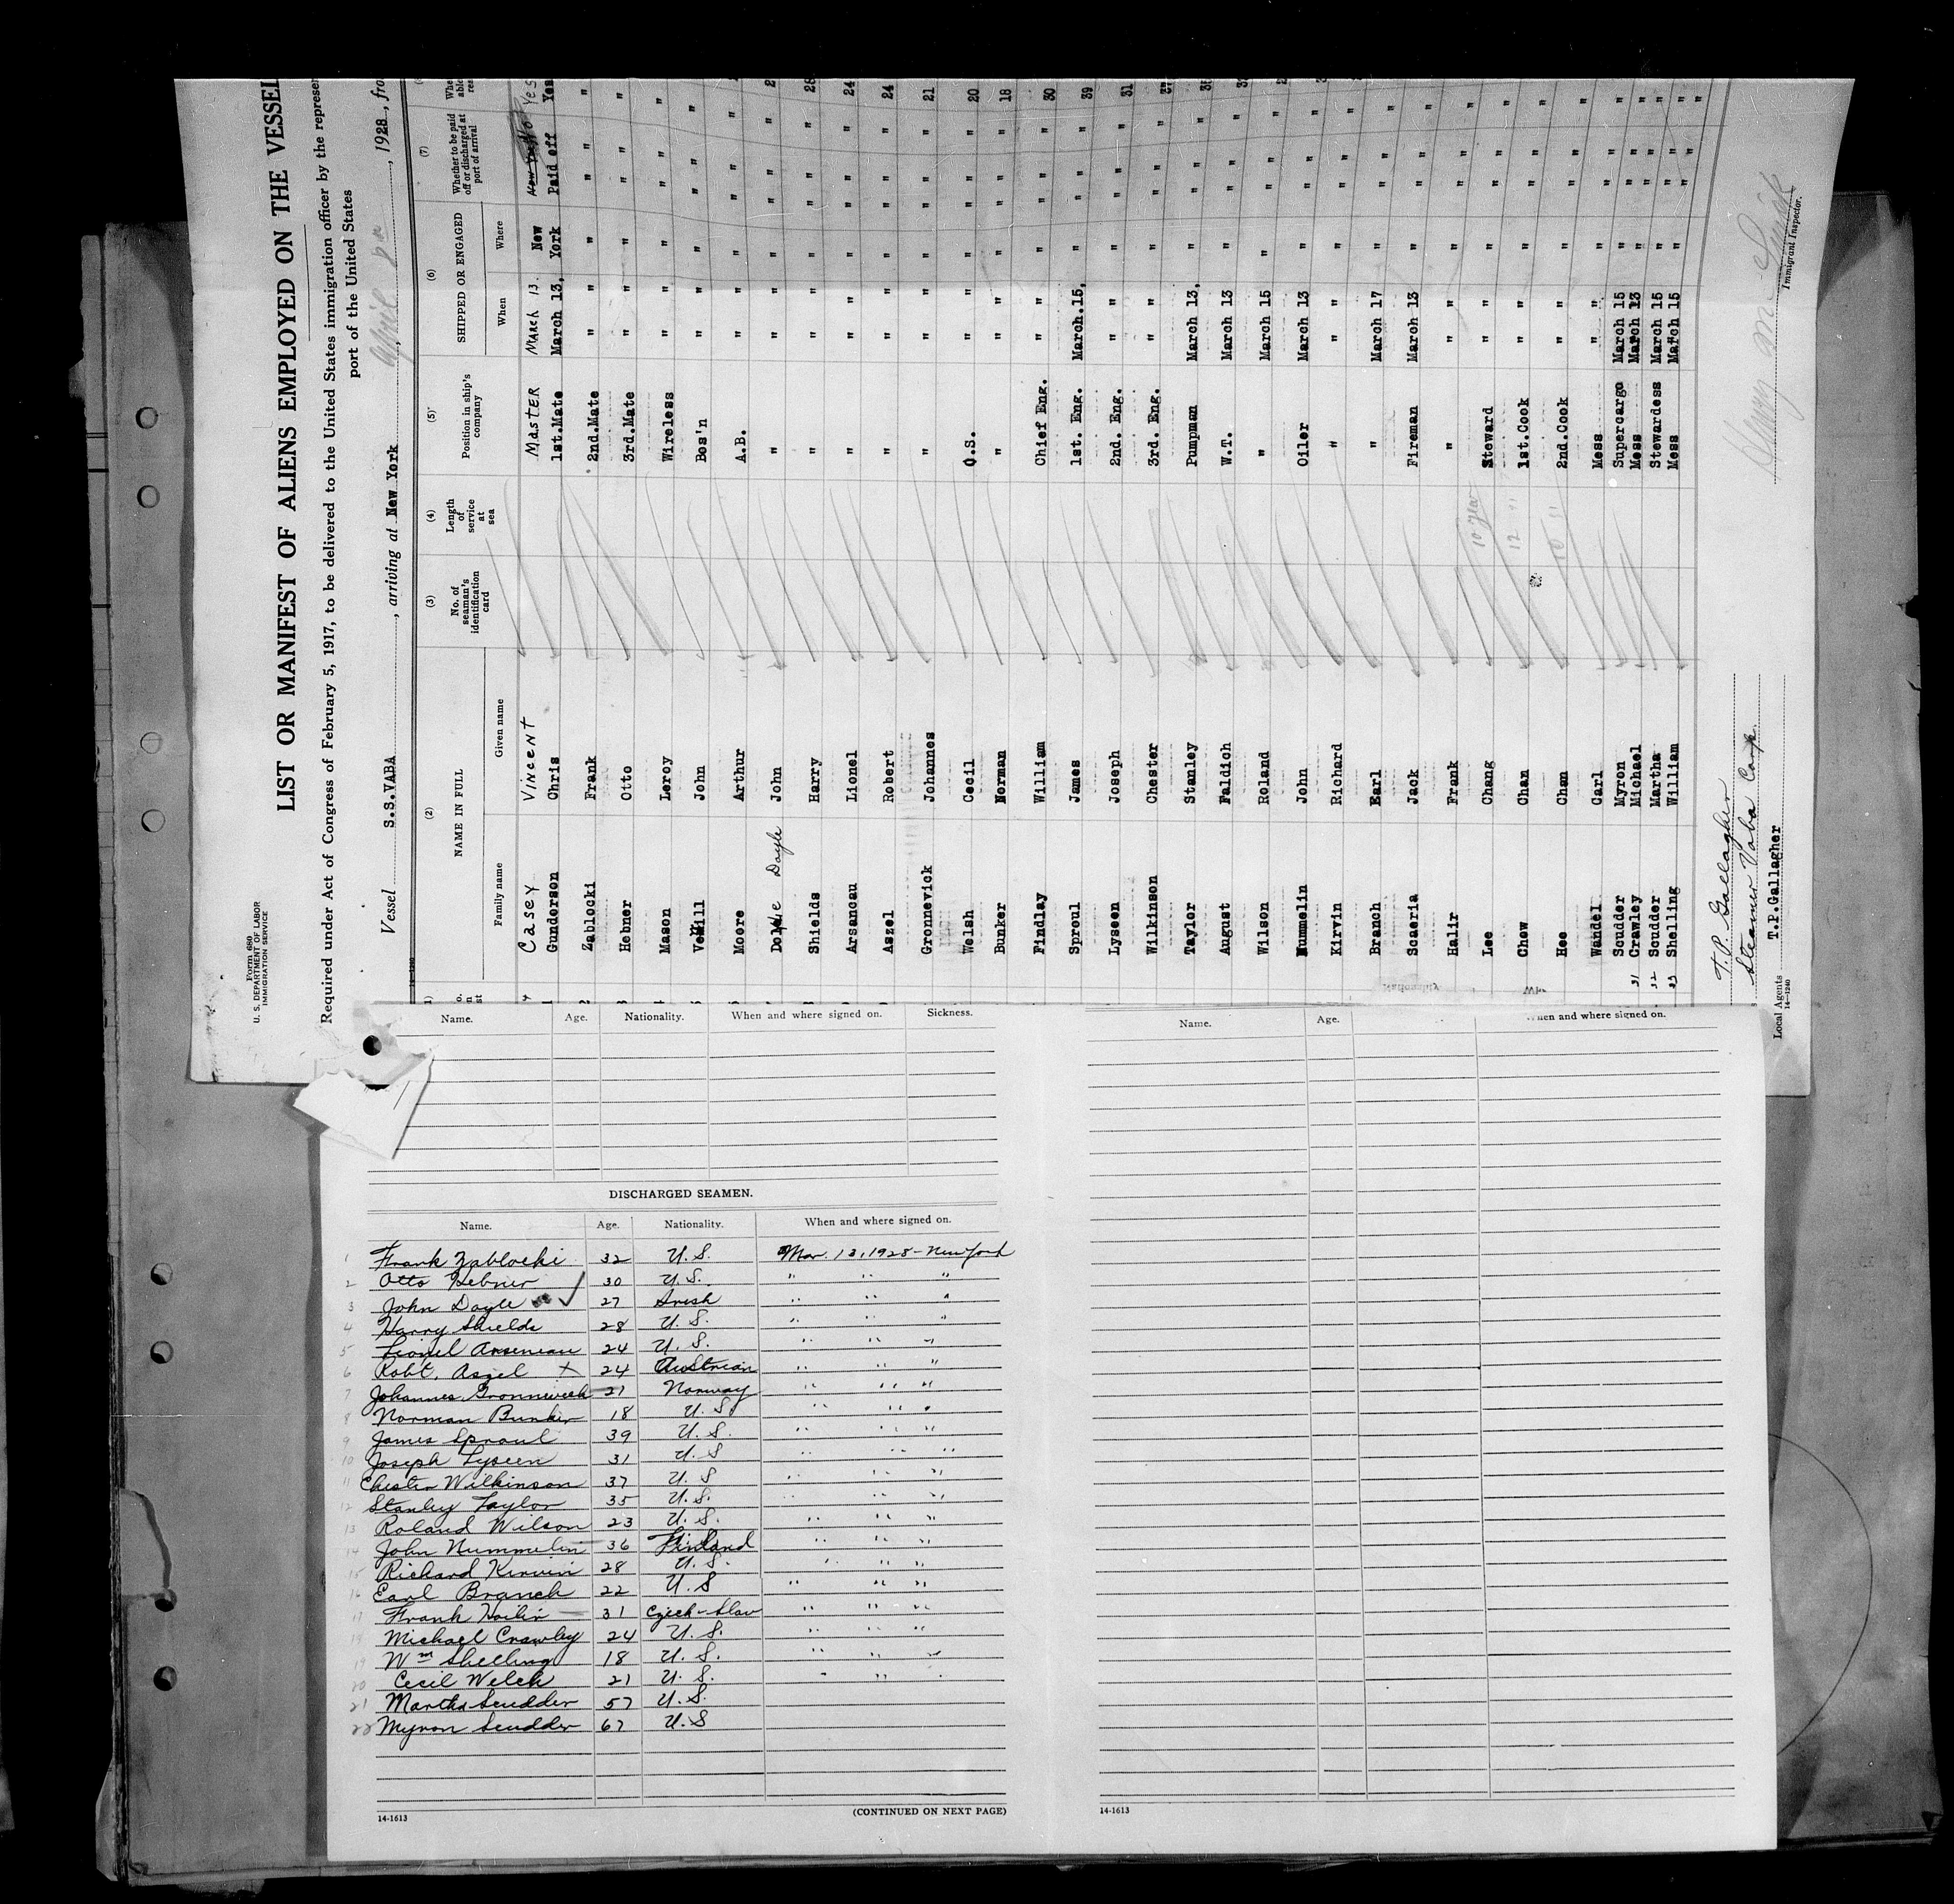 Form 680
U. S. DEPARTMENT OF LABOR
IMMIGRATION SERVICE
LIST OR MANIFEST OF ALIENS EMPLOYED ON THE VESSEL
Required under Act of Congress of February 5, 1917, to be delivered to the United States immigration officer by the represen
port of the United States
Vessel S.S.VABA, arriving at New York, April, 1928, fro
(2) (3) (4) (5) (6) (7)
NAME IN FULL No. of seaman's identification card Length of service at sea Position in ship's company SHIPPED OR ENGAGED Whether to be paid off or discharged at port of arrival
Family name Given name When Where
Casey Vincent Master March 13. New Yes
1 Gunderson Chris 1st.Mate March 13, York Paid off Yes
2 Zablocki Frank 2nd.Mate " " " " " "
3 Hebner Otto 3rd.Mate " " " " " "
4 Mason Leroy Wireless " " " " " "
5 John Bos'n " " " " " "
6 Moore Arthur A.B. " " " " " "
Doyle John " " " " " " "
8 Shields Harry " " " " " " " 28
Arsaneau Lionel " " " " " " " 24
Aszel Robert " " " " " " " 24
Gronnevick Johannes " " " " " " " 21
Welsh Cecil O.S. " " " " " " 20
Bunker Norman " " " " " " " 18
Findlay William Chief Eng. " " " " " " 30
Sproul James 1st. Eng. March.15, " " " " 39
Lyseen Joseph 2nd. Eng. " " " " " " 31
Wilkinson Chester 3rd. Eng. " " " " " " 37
Taylor Stanley Pumpman March 13, " " " " 35
August Faldich W.T. March 13 " " " "
Wilson Roland " March 15 " " " "
Nummelin John Oiler March 13 " " " "
Kirvin Richard " " " " " " "
Branch Earl " March 17 " " " "
Scaeria Jack Fireman March 13 " " " "
Halir Frank " " " " " " "
Lee Chang 10 year Steward " " " " " "
Chow Chan 12 " 1st.Cook " " " " " "
Hee Chan 10 " 2nd.Cook " " " " " "
Wandel Carl Mess " " " " " "
Scudder Myron Supercargo March 15 " " " "
31 Crawley Michael Mess March 13 " " " "
32 Scudder Martha Stewardess March 15 " " " "
33 Shelling William Mess March 15 " " " "
T.P. Gallagher
Steamer Vaba Corp.
Local Agents T.P.Gallagher
14-1240
Immigrant Inspector.
Name. Age. Nationality. When and where signed on. Sickness.
Name. Age. When and where signed on.
DISCHARGED SEAMEN.
Name. Age. Nationality. When and where signed on.
1 Frank Zablocki 32 U.S. Mar. 13, 1928 - New York
2 Otto Hebner 30 U.S. " " "
3 John Doyle 27 Irish " " "
4 Harry Shields 28 U.S. " " "
5 Lionel Arseneau 24 U.S. " " "
6 Robt. Aszel x 24 Austrian " " "
7 Johannes Gronnevick 21 Norway " " "
8 Norman Bunker 18 U.S. " " "
9 James Sproul 39 U.S. " " "
10 Joseph Lyseen 31 U.S " " "
11 Chester Wilkinson 37 U.S " " "
12 Stanley Taylor 35 U.S. " " "
13 Roland Wilson 23 U.S. " " "
14 John Nummelin 36 Finland " " "
15 Richard Kirvin 28 U.S. " " "
16 Earl Branch 22 U.S " " "
17 Frank Hailir 31 Czech-Slav " " "
18 Michael Crawley 24 U.S. " " "
19 Wm Shelling 18 U.S. " " "
20 Cecil Welch 21 U.S. " " "
21 Martha Scudder 57 U.S.
22 Myron Scudder 67 U.S
14-1613 (CONTINUED ON NEXT PAGE)
14-1613